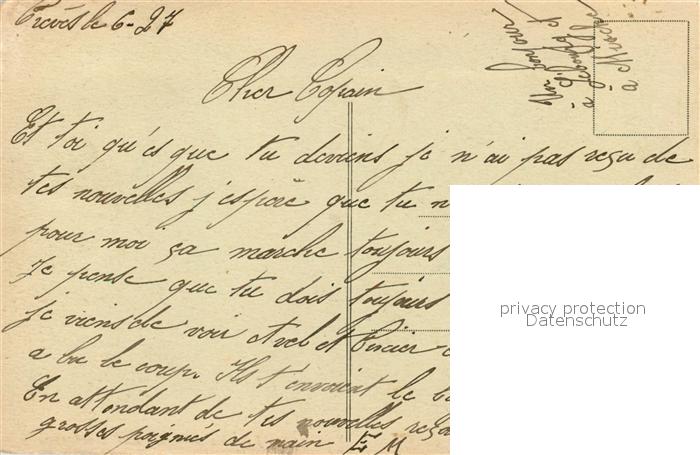 Trèves le 6-27
Un bonjour
à
à
Cher Copain
Et toi qu'es que tu deviens je n'ai pas reçu de
tes nouvelles j'espère que tu n
pour moi ça marche toujours
Je pense que tu dois toujours
je viens de voir et
a bu le coup. Ils t'envoient le
En attendant de tes nouvelles reço
grosses poignés de main E M
privacy protection
Datenschutz